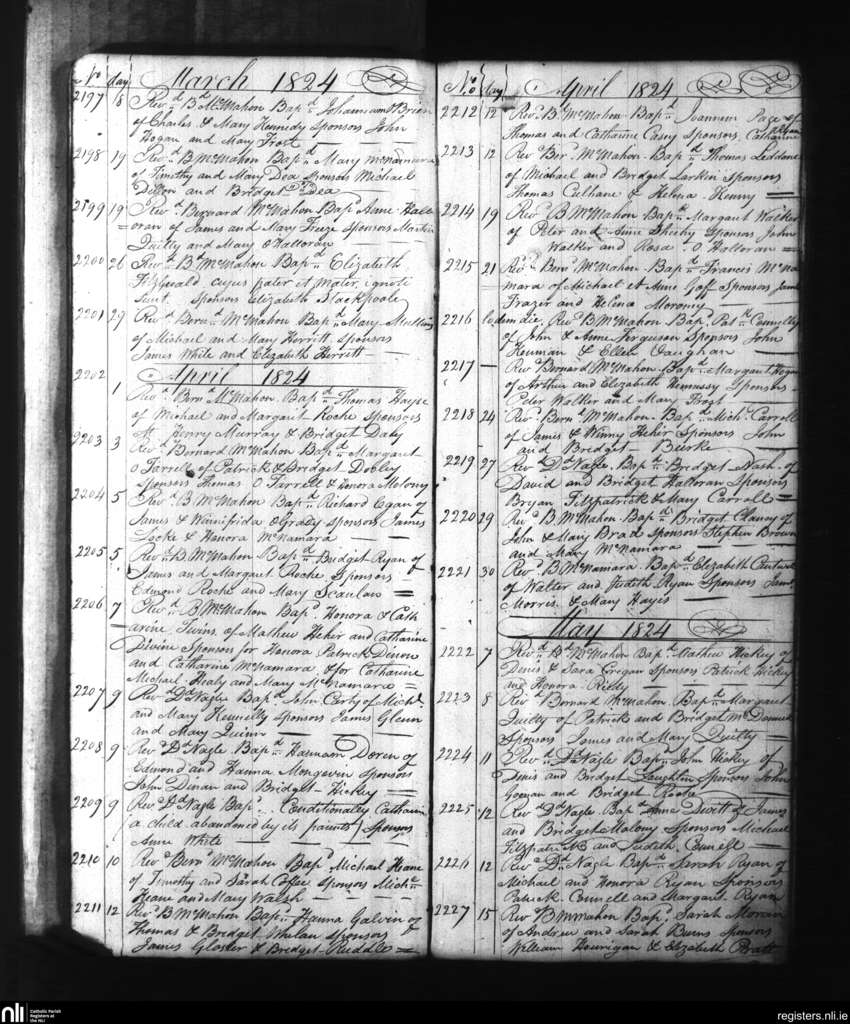 No day March 1824
2197 18 Revd Bd McMahon Bapd Johannam OBrien
of Charles & Mary Kennedy Sponsors John
Hogan and Mary Frost
2198 19 Revd B McMahon Bapd Mary McNamara
of Timothy and Mary Dea Sponsors Michael
Dillon and Bridget Dea
2199 19 Revd Bernard McMahon Bapd Anne Hall
oran of James and Mary Freeze Sponsors Martin
Quilty and Mary O Halloran
2200 26 Revd Bd McMahon Bapd Elizabeth
Fitzgerald cujus pater et mater ignote
sunt. Sponsors Elizabeth Stackpoole
2201 29 Revd Bernd McMahon Bapd Mary Mullins
of Michael and Mary Herritt Sponsors
James White and Elizabeth Herritt
2202 April 1824
1 Revd Bernd McMahon Bapd Thomas Hayse
of Michael and Margaret Roche Sponsors
St. Henry Murray & Bridget Daly
2203 3 Revd Bernard McMahon Bapd Margaret
O Farrell of Patrick & Bridget
Sponsors Thomas O Farrell & Honora Molony
2204 5 Revd B. McMahon Bapd Richard Egan of
James & Wainifrida O Grady Sponsors James
Locke & Honora McNamara
2205 5 Revd B. McMahon Bapd Bridget Ryan of
James and Margaret Roche Sponsors
Edmond Roche and Mary Scanlan
2206 7 Revd B McMahon Bapd Honora & Cath
arine Twins of Mathew Hehir and Catharine
Divine Sponsors for Honora Patrick Dinon
and Catharine McNamara & for Catharine
Michael Healy and Mary McNamara
2207 9 Revd Dd Nagle Bapd John Carty of Michl
and Mary Kennelly Sponsors James Glenn
and Mary Quinn
2208 9 Revd Dd Nagle Bapd Hannam Doren of
Edmond and Hanna Mongeven Sponsors
John Dinan and Bridget Hickey
2209 9 Revd Dd Nagle Bapd Conditionaley Catharin
(a child abandoned by its parents) Sponsors
Anne White
2210 10 Revd Bernd McMahon Bapd Michael Keane
of Timothy and Sarah Coffee Sponsors Michl
Keane and Mary Walsh
2211 12 Revd B McMahon Bapd Hanna Galvin of
Thomas & Bridget Whelan Sponsors
James Gloster & Bridget Ruddle
No day April 1824
2212 12 Revd B. McMahon Bapd Joannem Page of
Thomas and Catharine Casey Sponsors Catharine Ryan
2213 12 Revd Bernd McMahon Bapd Thomas Leddane
of Michael and Bridget Larkin Sponsors
Thomas Culhane & Helena Kenny
2214 19 Revd B McMahon Bapd Margaret Walker
of Peter and Anne Sheehy Sponsors John
Walker and Rosa O Holloran
2215 21 Revd Bernd McMahon Bapd Francis McNa
mara of Michael et Anne Goff Sponsors James
Frazer and Helena Moroney
2216 Eodem die. Revd B McMahon Bapd Patk Connelly
of John & Anne Ferguson Sponsors John
Heuman & Ellen Vaughan
2217 — Revd Bernard McMahon Bapd Margaret Hogan
of Arthur and Elizabeth Hennessy Sponsors
Peter Walker and Mary Frost
2218 24 Revd Bernd McMahon Bapd Michl Carroll
of James & Winny Hehir Sponsors John
and Bridget Burke
2219 27 Revd Dd Nagle Bapd Bridget Nash of
David and Bridget Halloran Sponsors
Bryan Fitzpatrick & Mary Carroll
2220 29 Revd B. McMahon Bapd Bridget Clancy of
John & Mary Brad Sponsors Stephen Brown
and Mary McNamara
2221 30 Revd B. McNamara Bapd Elizabeth
of Walter and Judith Ryan Sponsors James
Morris & Mary Hayes
May 1824
2222 7 Revd Bd McMahon Bapd Mathew Hickey of
Denis & Sara Grogan Sponsors Patrick Hickey
and Honora
2223 8 Revd Bernard McMahon Bapd Margaret
Quilty of Patrick and Bridget McDonnell
Sponsors James and Mary Quilty
2224 11 Revd Dd Nagle Bapd John Hickey of
Denis and Bridget Laughlin Sponsors John
and Bridget Roche
2225 12 Revd Dd Nagle Bapd Anne Divitt of James
and Bridget Malony Sponsors Michael
Fitzpatrick and Judith Connell
2226 12 Revd Dd Nagle Bapd Sarah Ryan of
Michael and Honora Ryan Sponsors
Patrick Connell and Margaret Ryan
2227 15 Revd B McMahon Bapd Sarah Moran
of Andrew and Sarah Burns Sponsors
William Hourigan & Elizabeth Pratt
nli Catholic Parish
Registers at
the NLI
registers.nli.ie